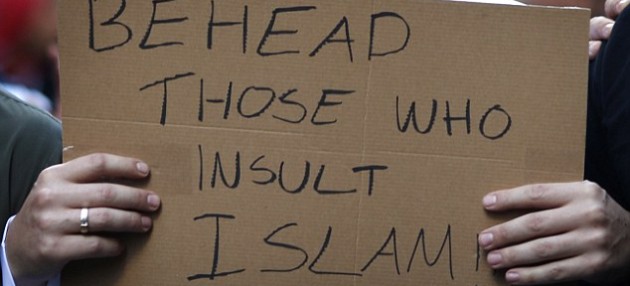 BEHEAD
THOSE WHO
INSULT
ISLAM!